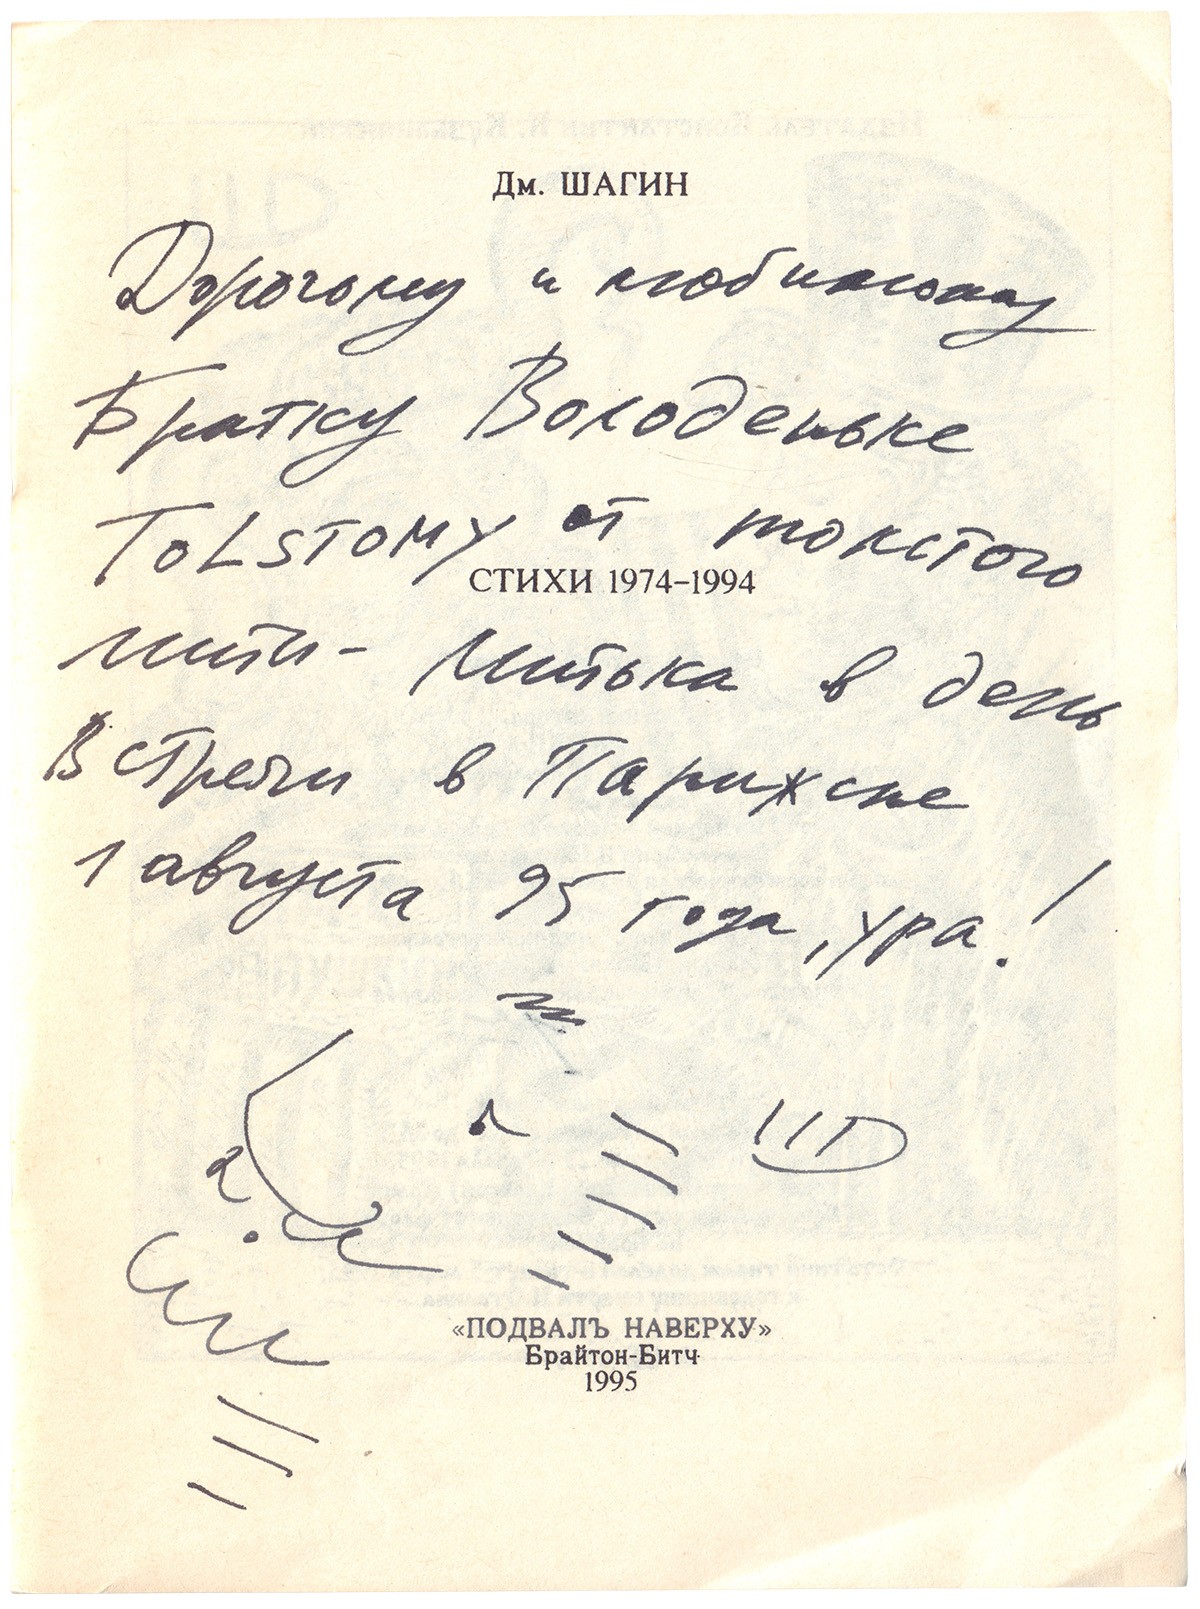 Дм. ШАГИН
Дорогому и любимому
Братку Володеньке
TOLSTOMУ от толстого
СТИХИ 1974–1994
мити- митька в день
Встречи в Париже
1 августа 95 года, ура!
«ПОДВАЛЪ НАВЕРХУ»
Брайтон-Битч
1995